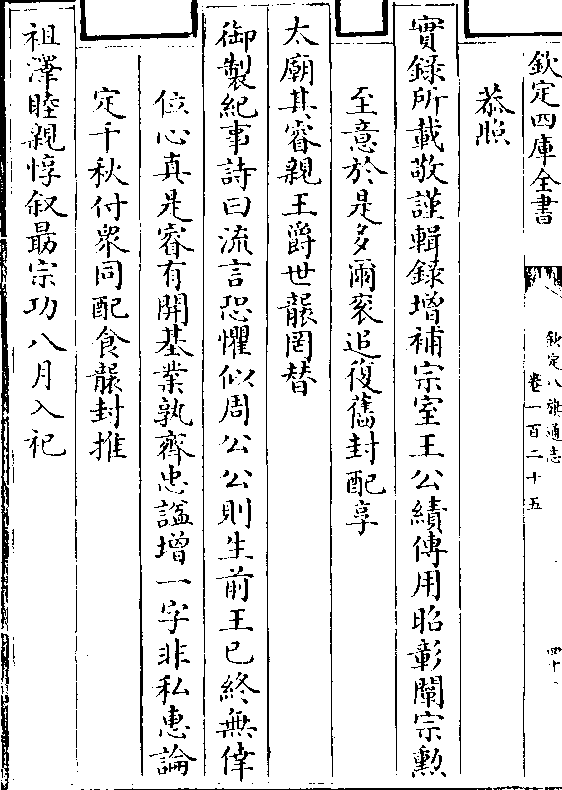 欽定四庫全書
欽定八旗通志
卷一百二十五
四十一
恭照
實錄所載敬謹輯錄增補宗室王公績傳用昭彰闡宗勲
至意於是多爾袞追復舊封配享
太廟其睿親王爵世襲罔替
御製紀事詩曰流言恐懼似周公公則生前王已終無倖
位心真是睿有開基業孰齊忠諡增一字非私惠論
定千秋付衆同配食襲封推
祖澤睦親惇叙最宗功八月入祀